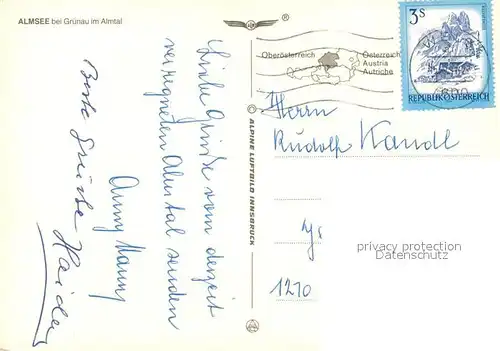 ALMSEE bei Grünau im Almtal
®
Liebe Grüße vom derzeit
verregneten Almtal senden
Anny Hanny
Beste Grüße Haider
© ALPINE LUFTBILD INNSBRUCK
Oberösterreich
Österreich
Austria
Autriche
3 S
REPUBLIK ÖSTERREICH
Herrn
Rudolf Kandl
1210
privacy protection
Datenschutz